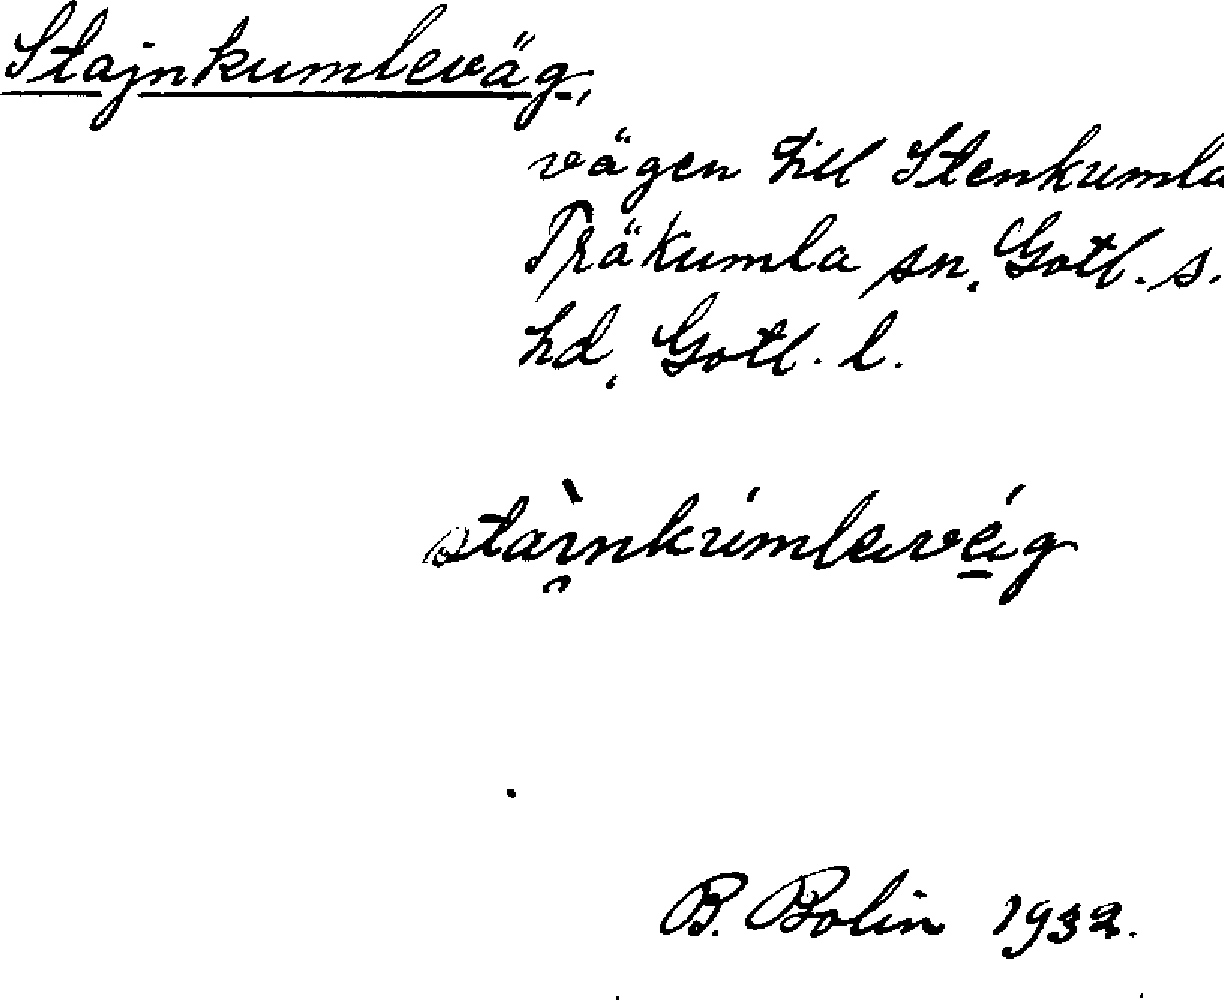 Stajnkumleväg,
vägen till Stenkumla
Träkumla sn, Gotl. s.
hd, Gotl. l.
B. Bolin 1932.